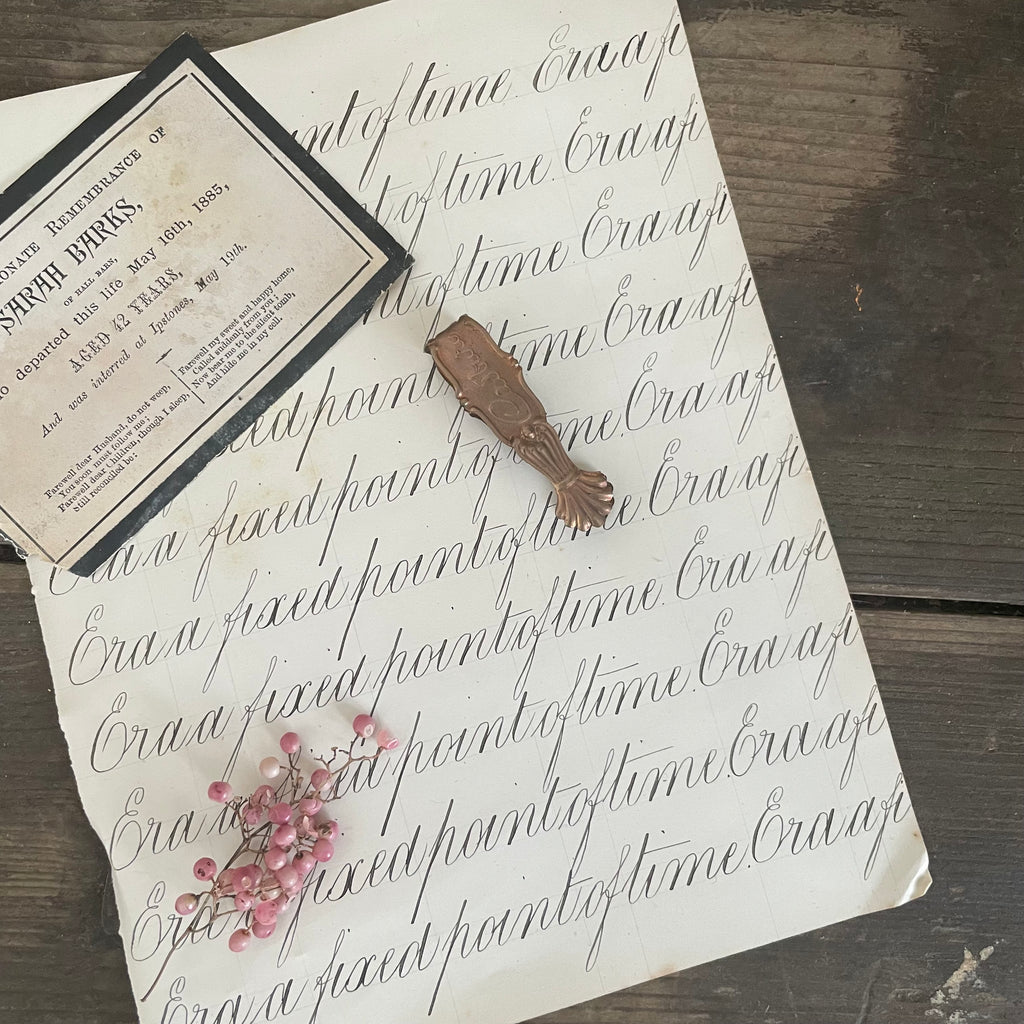 ONATE REMEMBRANCE OF
SARAH BARKS,
OF HALL BARN,
o departed this life May 16th, 1885,
AGED 42 YEARS,
And was interred at Ipstones, May 19th.
Farewell dear Husband, do not weep,
You soon must follow me;
Farewell dear Children, though I sleep,
Still reconciled be:
Farewell my sweet and happy home,
Called suddenly from you;
Now bear me to the silent tomb,
And hide me in my cell.
int of time. Era a fi
t of time. Era a fi
nt of time. Era a fi
xed point time. Era a fi
Era a fixed point of time. Era a fi
Era a fixed point of time. Era a fi
Era a fixed point of time. Era a fi
Era a point of time. Era a fi
Era fixed point of time. Era a fi
Era a fixed point of time. Era a fi